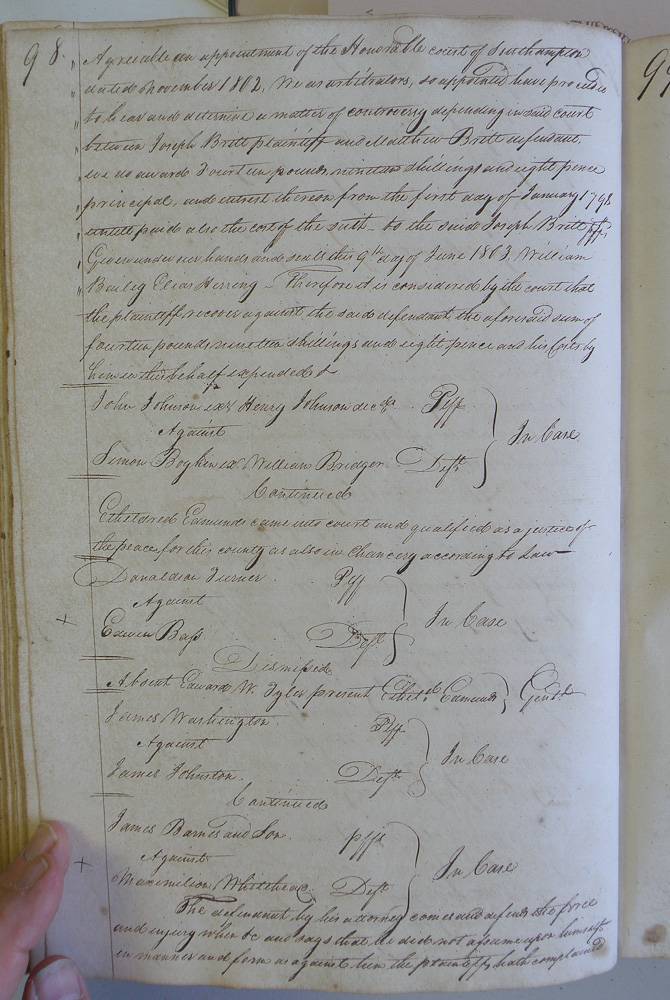 98.
" Agreeable an appointment of the Honorable court of Southampton
" dated November 1802, We as arbitrators, so appointed have proceeded
" to hear and determine a matter of controversy depending in said court
" between Joseph Britt plaintiff and Matthew Britt defendant,
" we do award Fourteen pounds nineteen shillings and eight pence
" principal, and interest thereon from the first day of January 1798
" untill paid also the cost of the suit - to the said Joseph Britt plff,
" Given under our hands and seals this 9th day of June 1803, William
" Bailey Elias Herring - Therefore it is considered by the court that
the plaintiff recover against the said defendant the aforesaid sum of
fourteen pounds nineteen shillings and eight pence and his Costs by
him in this behalf expended &
John Johnson exr Henry Johnson decd Plff
Against In Case
Simon Boykin ex William Bridger Deft
Continued
Etheldred Edmunds came into court and qualified as a justice of
the peace for this county as also in Chancery according to Law
Donaldson Turner Plff
Against In Case
+ Edwin Bass Deft
Dismissed
Absent Edward W. Tyler present Etheld. Edmunds Gent
James Washington Plff
Against In Case
James Johnston. Deft
Continued
James Barnes and Son. plffs
Against In Case
+ Maximilion Whitehead. Deft
The defendant by his attorney comes and defends the force
and injury when &c and says that he did not assume upon himself
in manner and form as against him the plaintiffs hath complained
99